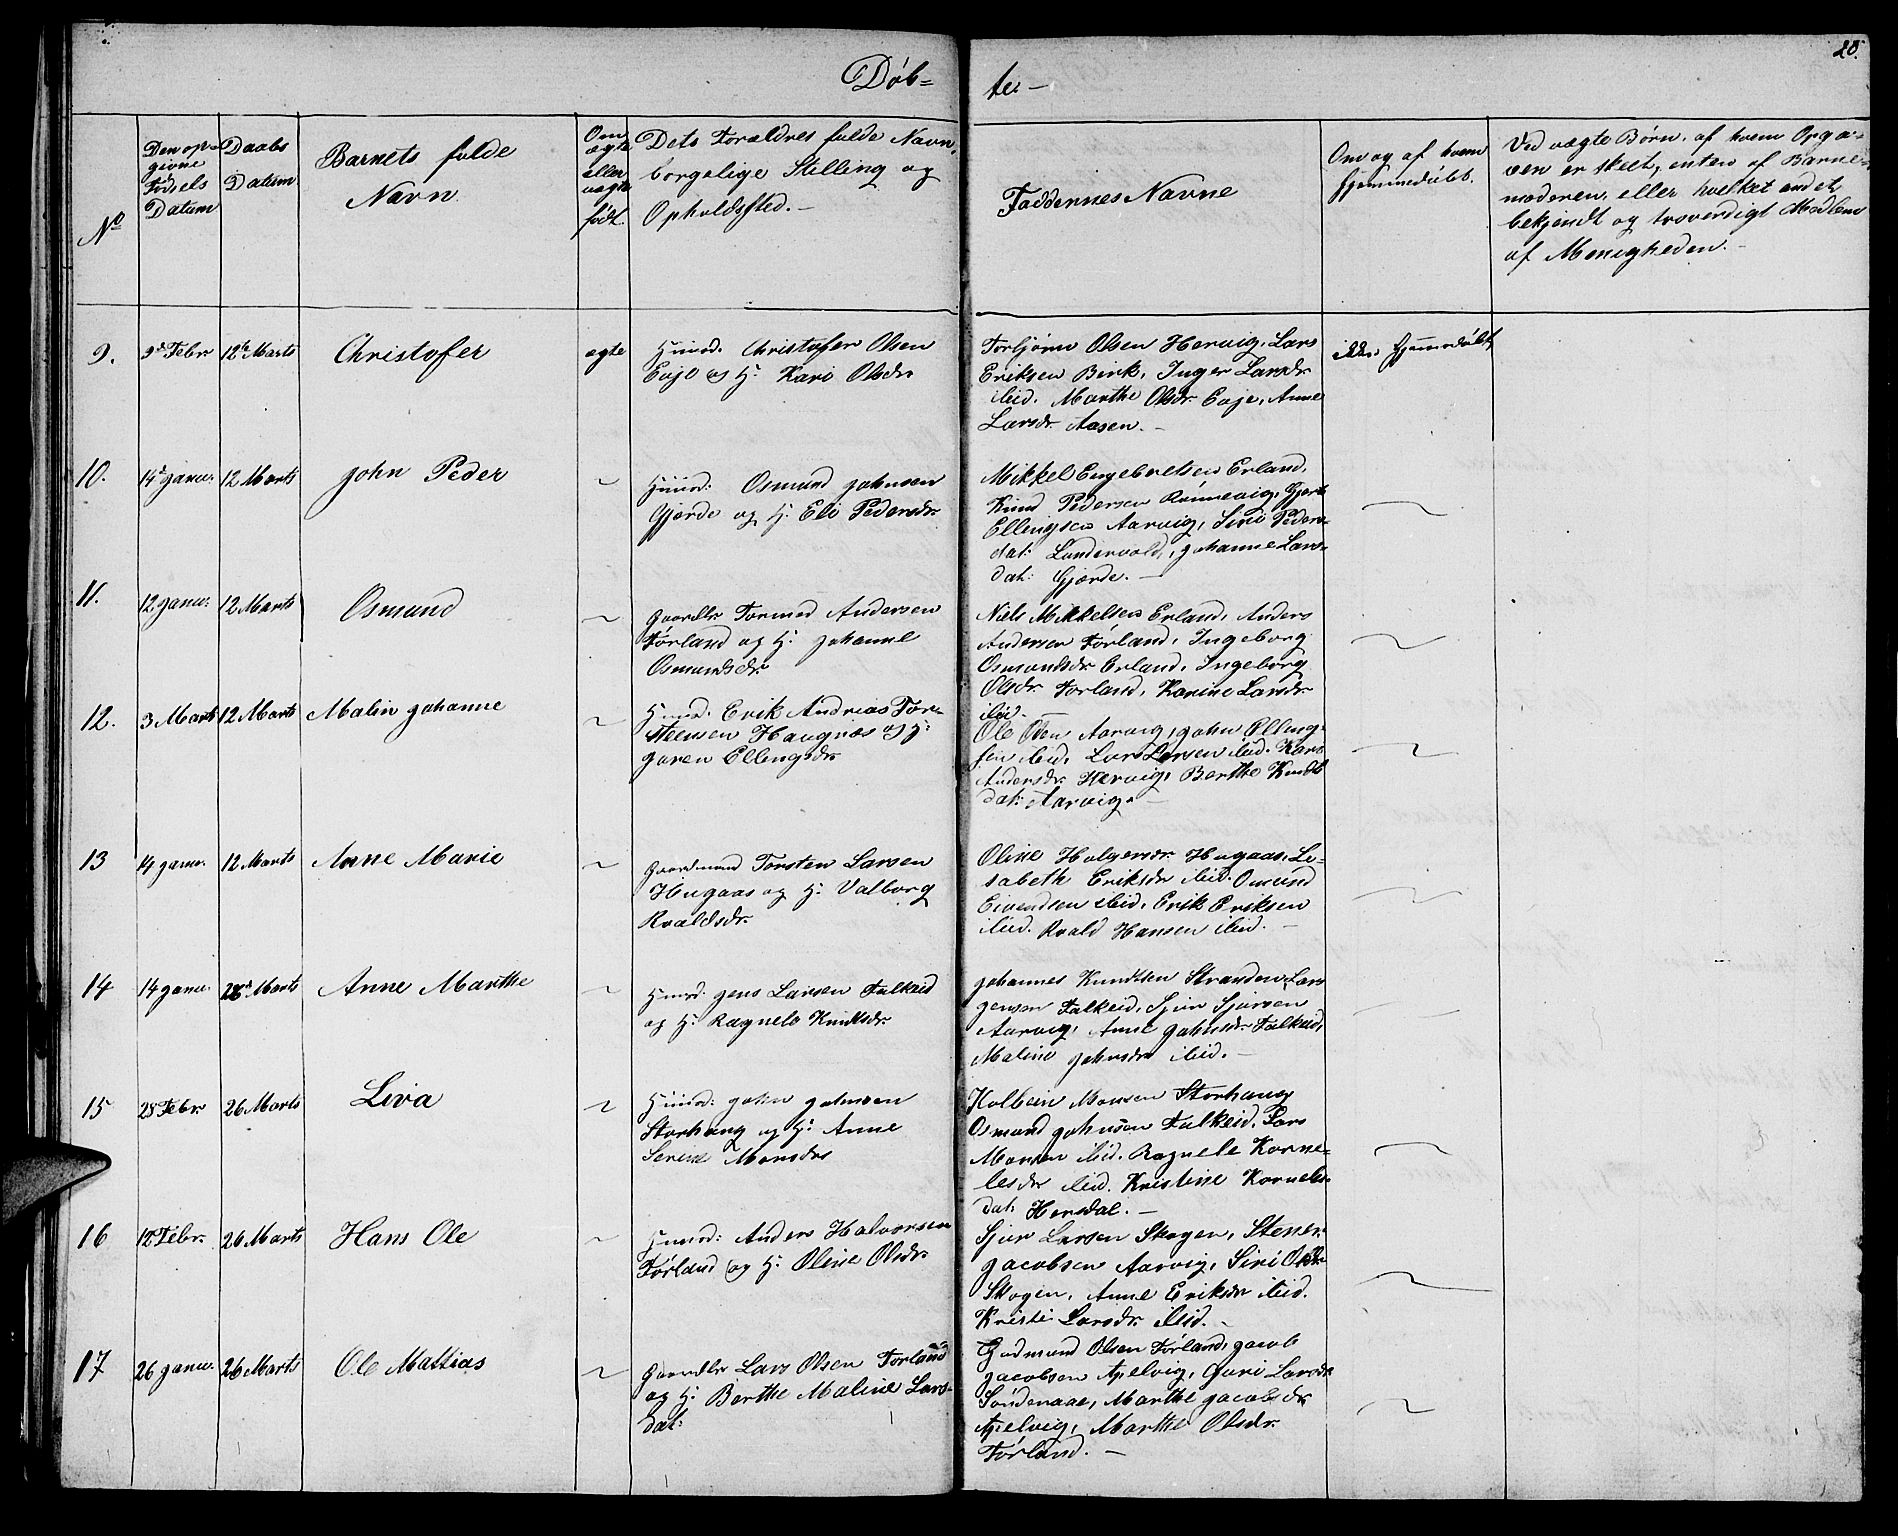 20.
Døb-
te.-
No
Den op-
givne
Fødsels
Datum
Daabs
Datum
Barnets fulde
Navn
Om
ægte
eller
uægte
født.
Dets Forældres fulde Navn,
borgelige Stilling og
Opholdssted.-
Faddernes Navne
Om og af hvem
hjemmedøbt.
Ved uægte Børn, af hvem Opga-
ven er skeet, enten af Barne-
moderen, eller hvilket andet
bekjendt og troverdigt Medlem
af Menigheden.-
9.
9d Febr
12te Marts
Christofer
ægte
Huusd. Christofer Olsen
Eoje og H. Kari Olsdr.
Torbjørn Olsen Hervig, Lars
Eriksen Berk, Inger Larsdr
ibid. Marthe Olsdr. Eoje, Anne
Larsdr. Aasen.-
ikke hjemmedøbt
10.
14d Janu.
12 Marts
John Peder
~
Huusd: Osmund Johnsen
Gjerde og H. Eli Pedersdr.
Mikkel Engebretsen Erland,
Knud Pedersen Rønnevig, Gjert
Ellengsen Aarvig, Siri Peders-
dat: Landervold, Johanne Lars-
dat: Gjerde.-
~
11.
12 Janu.
12 Marts
Osmund
~
Gaardbr Tormod Andersen
Førland og H. Johanne
Osmundsdr.
Niels Mikkelsen Erland, Anders
Andersen Førland, Ingeborg
Osmundsdr. Erland, Ingeborg
Olsdr. Førland, Karine Larsdr
ibid.
~
12.
3 Marts
12 Marts
Malin Johanne
~
Huusd. Erik Andreas Tor-
steensen Haugnæs og H:
Joren Ellingsdr.
Ole Olsen Aarvig, John Elling-
sen ibid, Lars Larsen ibid. Kari
Andersdr. Hervig, Berthe Knuds
dat: Aarvig.-
~
13
14 Janu.
12 Marts
Anne Marie
~
Gaardmand Torsten Larsen
Hugaas og H. Valborg
Roaldsdr.
Oline Holgersdr. Hugaas, Li-
sabeth Eriksdr ibid. Omund
Eivendsen ibid. Erik Eriksen
ibid. Roald Hansen ibid.-
~
14
14 Janu.
26d Marts
Anne Marthe
~
Huusd. Jens Larsen Falkeid
og H. Ragnele Knudsdr.
Johannes Knudsen Stranden, Lars
Jensen Falkeid, Sjur Sjursen
Aarvig, Anne Johnsdr. Falkeid,
Maline Johnsdr ibid.-
15
28 Febr
26 Marts
Liva
~
Huusd: John Johnsen
Storhaug og H. Anne
Serene Monsdr
Kolbein Monsen Storhaug
Osmund Johnsen Falkeid, Lars
Monsen ibid. Ragnele Korne-
lesdr ibid. Kristine Kornels-
dat: Hersdal.-
~
16
12 Febr.
26 Marts
Hans Ole
~
Huusd: Anders Halvorsen
Førland og H. Oline Olsdr.
Sjur Larsen Skogen, Stener
Jacobsen Aarvig, Siri Olsdr.
Skogen, Anne Eriksdr ibid.
Kristi Larsdr. ibid.-
~
17
26 Janu.
26 Marts
Ole Mattias
~
Gaardbr Lars Olsen Førland
og H. Berthe Maline Lars-
dat:
Gudmund Olsen Førland, Jacob
Jacobsen Apelvig, Guri Larsdr
Søndenaae, Marthe Jacobsdr
Apelvig, Marthe Olsdr.
Førland.-
~